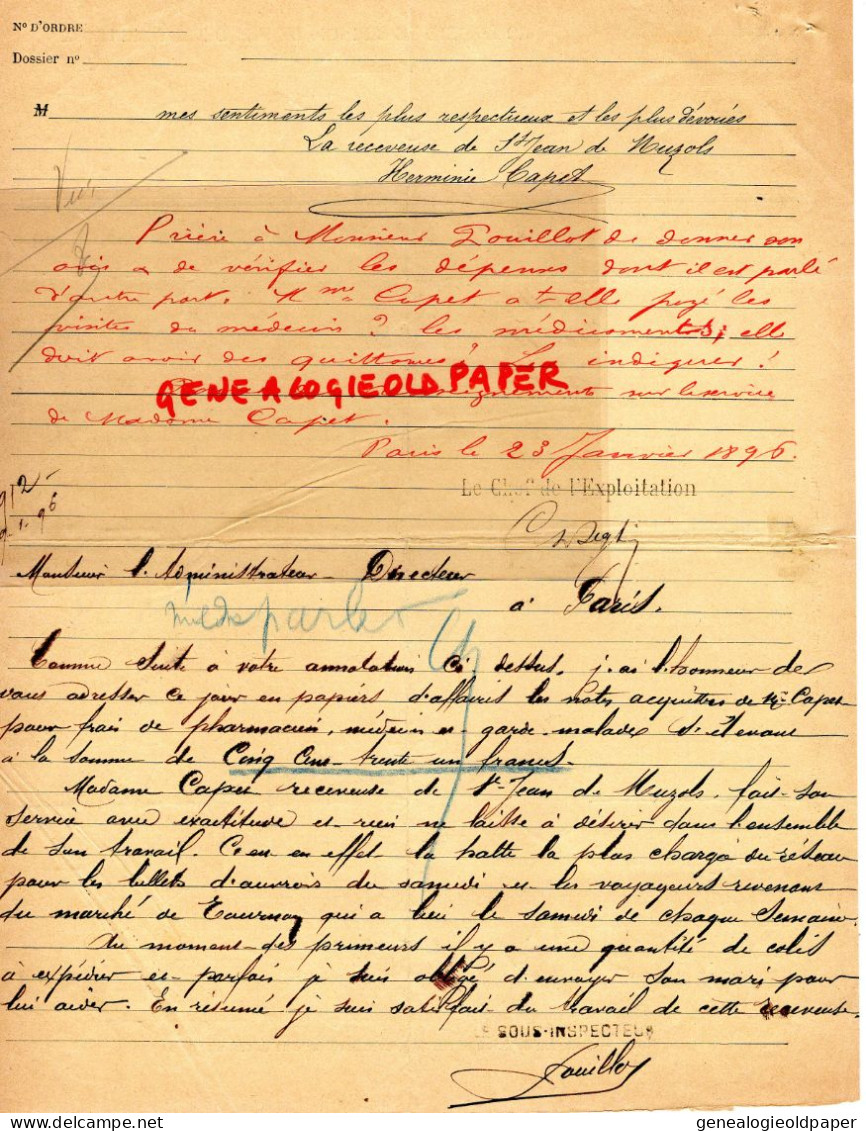 N° D'ORDRE
Dossier n°
M mes sentiments les plus respectueux et les plus dévoués
La receveuse de St Jean de Muzols
Herminie Capet
Vu
Prière à Monsieur Pouillot de donner son
avis & de vérifier les dépenses dont il est parlé
d'autre part. Mme Capet a-t-elle payé les
visites du médecin ? les médicaments ; elle
doit avoir des quittances ? Les indiquer !
GENEALOGIEOLDPAPER
renseignements sur le service
de Madame Capet.
Paris le 23 Janvier 1896.
Le Chef de l'Exploitation
Monsieur l'Administrateur Directeur
à Paris.
Comme suite à votre annotation ci dessus, j'ai l'honneur de
vous adresser ce jour en papiers d'affaires les notes acquittées de Me Capet
pour frais de pharmacien, médecin et garde-malades s'élevant
à la somme de Cinq Cent trente un francs.
Madame Capet receveuse de St Jean de Muzols, fait son
service avec exactitude et rien ne laisse à désirer dans l'ensemble
de son travail. C'en en effet la halte la plus chargé du réseau
pour les billets d'aurrois du samedi et les voyageurs revenant
du marché de Tournon qui a lieu le samedi de chaque semaine.
Au moment des primeurs il y a une quantité de colis
à expédier et parfois je suis obligé d'envoyer son mari pour
lui aider. En résumé je suis satisfait du travail de cette receveuse.
LE SOUS-INSPECTEUR
Pouillot
genealogieoldpaper